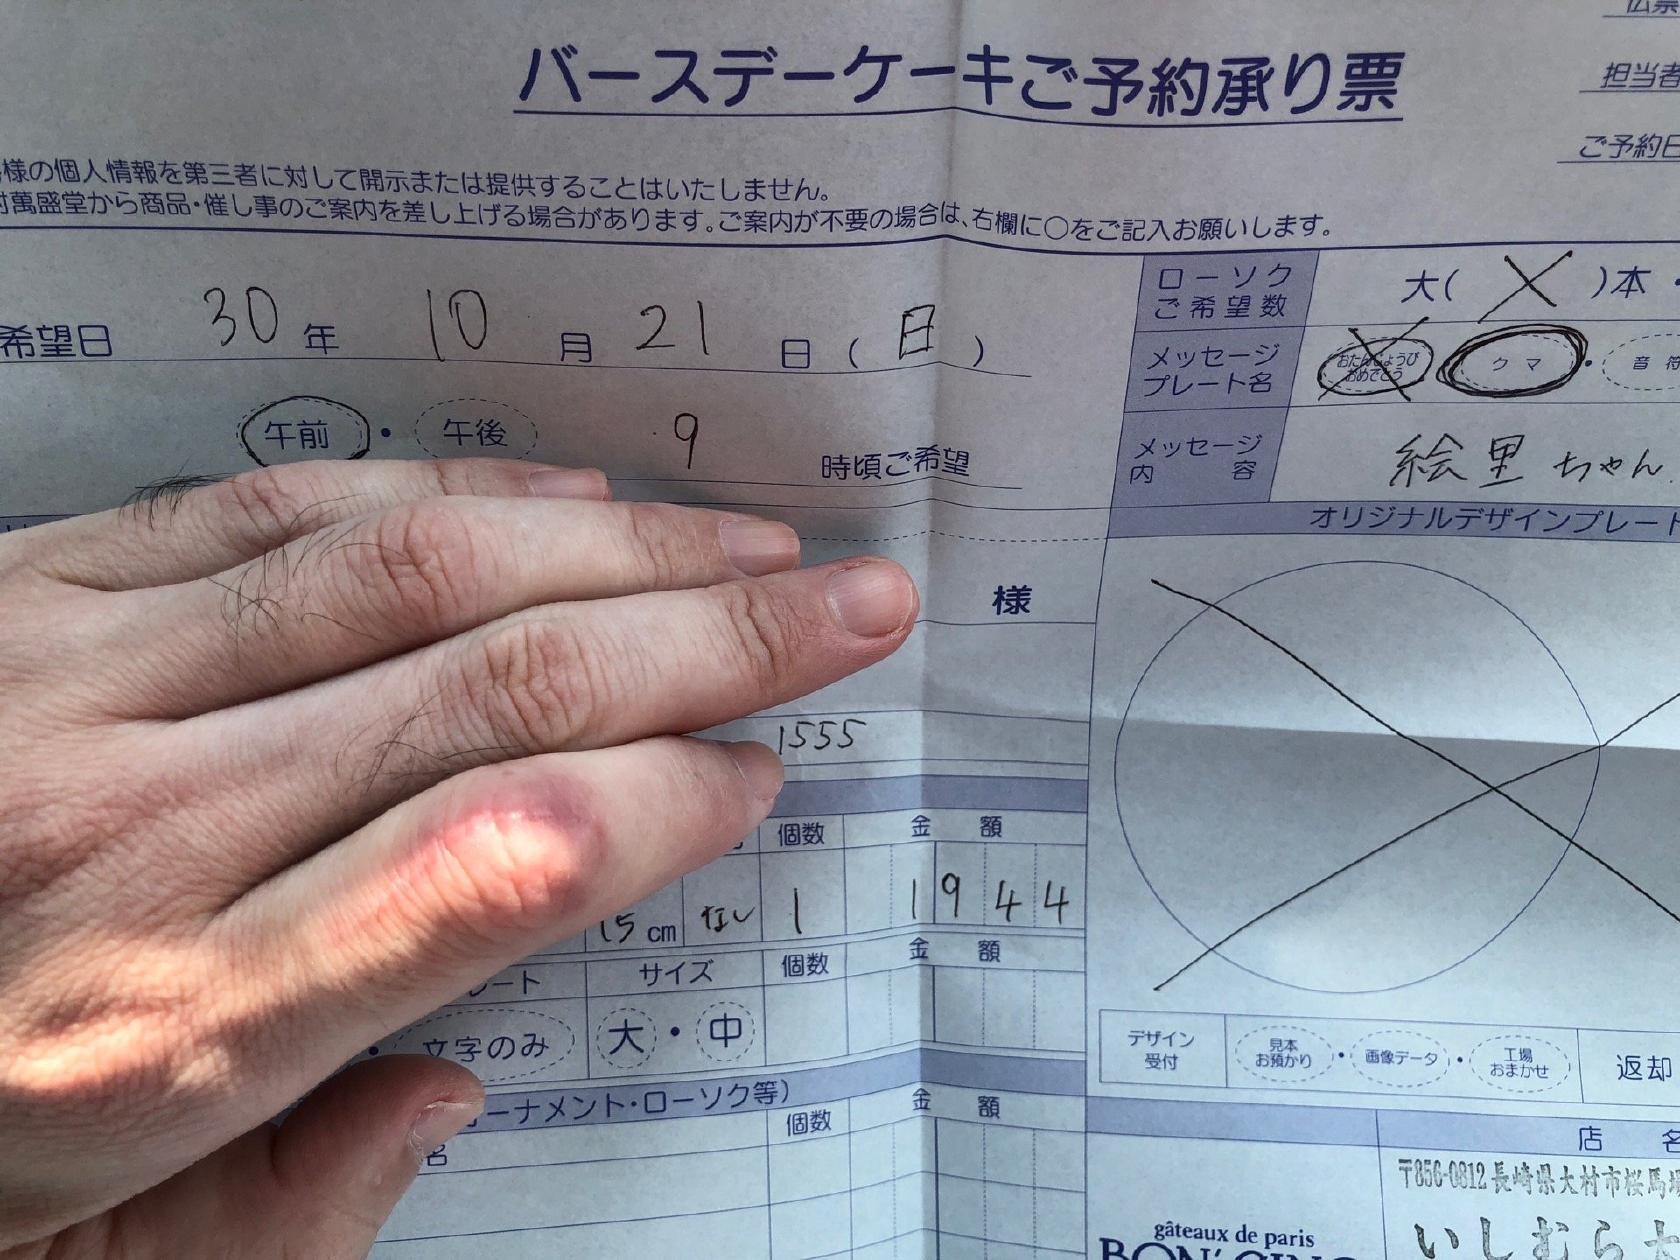 伝票
担当者
ご予約日
バースデーケーキご予約承り票
様の個人情報を第三者に対して開示または提供することはいたしません。
村萬盛堂から商品・催し事のご案内を差し上げる場合があります。ご案内が不要の場合は、右欄に○をご記入お願いします。
希望日 30 年 10 月 21 日 ( 日 )
午前 ・ 午後 9 時頃ご希望
様
1555
個数 金額
15 cm なし 1 1944
ート サイズ 個数 金額
・ 文字のみ 大 ・ 中
ーナメント・ローソク等)
名 個数 金額
ローソク
ご希望数
大( ✕ )本 ・
メッセージ
プレート名
おたんじょうび
おめでとう
クマ ・ 音符
メッセージ
内容
絵里ちゃん
オリジナルデザインプレート
デザイン
受付
見本
お預かり
・ 画像データ ・
工場
おまかせ
返却
店名
〒856-0812 長崎県大村市桜馬場
いしむら
gâteaux de paris